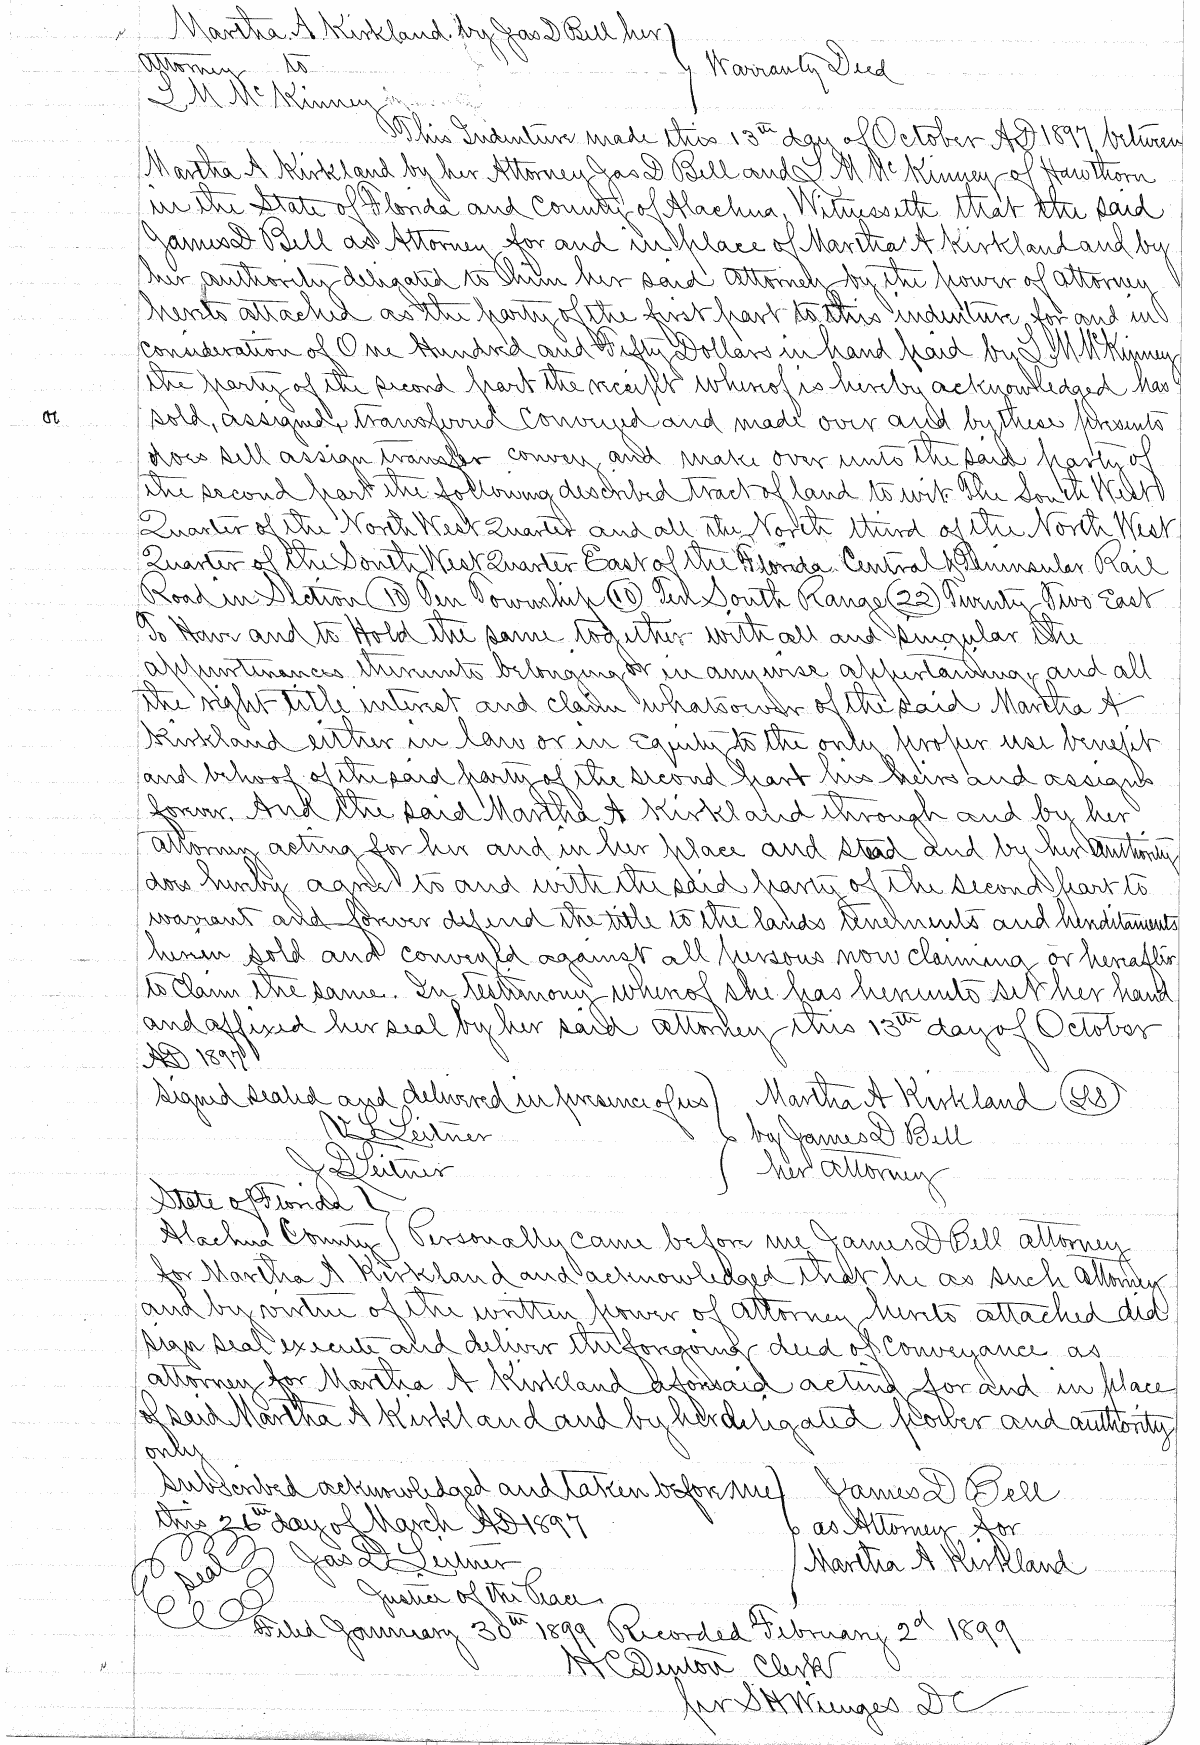 Martha A Kirkland by Jas D Bell her
Attorney to
L M McKinney
Warranty Deed
This Indenture made this 13th day of October AD 1897 between
Martha A Kirkland by her Attorney Jas D Bell and L M McKinney of Hawthorn
in the State of Florida and County of Alachua, Witnesseth that the said
James D Bell as Attorney for and in place of Martha A Kirkland and by
her authority deligated to him her said attorney by the power of attorney
hereto attached as the party of the first part to this indenture for and in
consideration of One Hundred and Fifty Dollars in hand paid by L M McKinney
the party of the second part the receipt whereof is hereby acknowledged has
sold, assigned, transferred conveyed and made over and by these presents
does sell assign transfer convey and make over unto the said party of
the second part the following described tract of land to wit. The South West
Quarter of the North West Quarter and all the North third of the North West
Quarter of the South West Quarter East of the Florida Central & Peninsular Rail
Road in Section (10) Ten Township (10) Ten South Range (22) Twenty Two East
To Have and to Hold the same together with all and singular the
appurtinances thereunto belonging or in anywise appertaining, and all
the right title interest and claim whatsoever of the said Martha A
Kirkland either in law or in Equity to the only proper use benefit
and behoof of the said party of the second part his heirs and assigns
forever. And the said Martha A Kirkland through and by her
attorney acting for her and in her place and stead and by her authority
does hereby agree to and with the said party of the second part to
warrant and forever defend the title to the lands tenements and hereditaments
herein sold and conveyed against all persons now claiming or hereafter
to claim the same. In testimony whereof she has hereunto set her hand
and affixed her seal by her said attorney this 13th day of October
AD 1897
Signed sealed and delivered in presence of us
Leitner
J D Leitner
Martha A Kirkland (LS)
by James D Bell
her attorney
State of Florida
Alachua County Personally came before me James D Bell attorney
for Martha A Kirkland and acknowledged that he as such attorney
and by virtue of the written power of attorney hereto attached did
sign seal execute and deliver the foregoing deed of conveyance as
attorney for Martha A Kirkland aforesaid acting for and in place
of said Martha A Kirkland and by her deligated power and authority
only
Subscribed acknowledged and taken before me
this 26th day of March AD 1897
Seal
Jas D Leitner
Justice of the Peace.
James D Bell
as Attorney for
Martha A Kirkland
Filed January 30th 1899 Recorded February 2d 1899
H C Denton Clerk
per S H Wienges DC